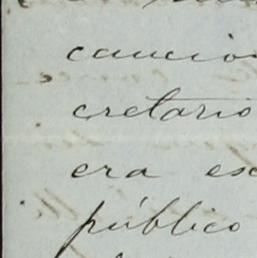 caucio
cretario
era es
público